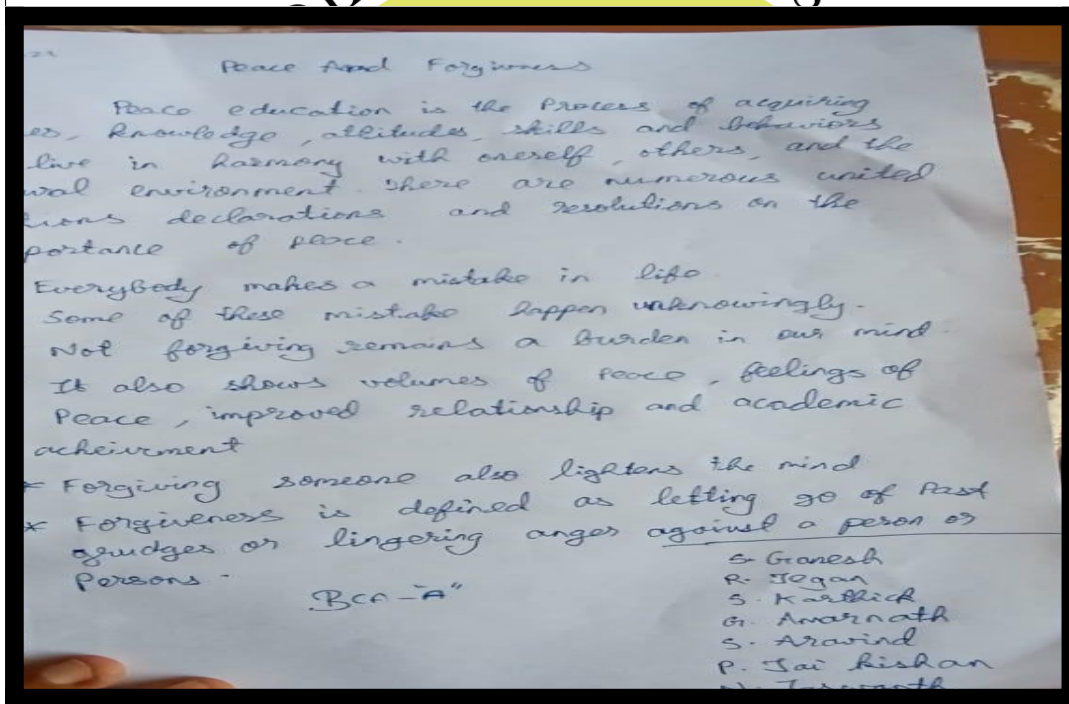 Peace And Forgivness
Peace education is the Process of acquiring
es, knowledge, attitudes, skills and behaviors
live in harmony with oneself, others, and the
ural environment. There are numerous united
tions declarations and resolutions on the
portance of peace.
Everybody makes a mistake in life.
Some of these mistake happen unknowingly.
Not forgiving remains a burden in our mind.
It also shows volumes of Peace, feelings of
Peace, improved relationship and academic
acheivment
* Forgiving someone also lightens the mind
* Forgiveness is defined as letting go of Past
grudges or lingering anger against a person or
Persons.
BCA-"A"
S. Ganesh
R. Jegan
S. Karthick
G. Amarnath
S. Aravind
P. Jai Kishan